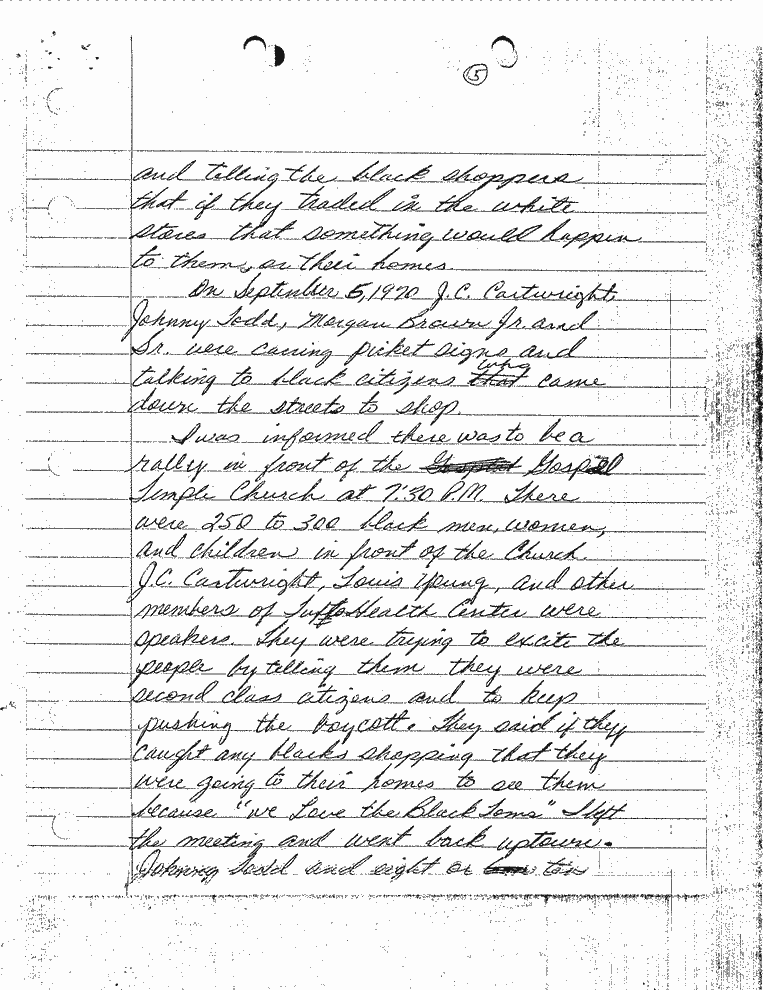 5
and telling the black shoppers
that if they traded in the white
stores that something would happen
to them, or their homes.
On September 5, 1970 J.C. Cartwright,
Johnny Todd, Morgan Brown Jr. and
Sr. were caring picket signs and
talking to black citizens that who came
down the streets to shop.
I was informed there was to be a
rally in front of the Gospel
Temple Church at 7:30 P.M. There
were 250 to 300 black men, women,
and children in front of the Church.
J.C. Cartwright, Louis Young, and other
members of Tufts Health Center were
speakers. They were trying to excite the
people by telling them they were
second class citizens and to keep
pushing the boycott. They said if they
caught any blacks shopping that they
were going to their homes to see them
because "we Love the Black Toms" I left
the meeting and went back uptown.
Johnny Todd and eight or ten